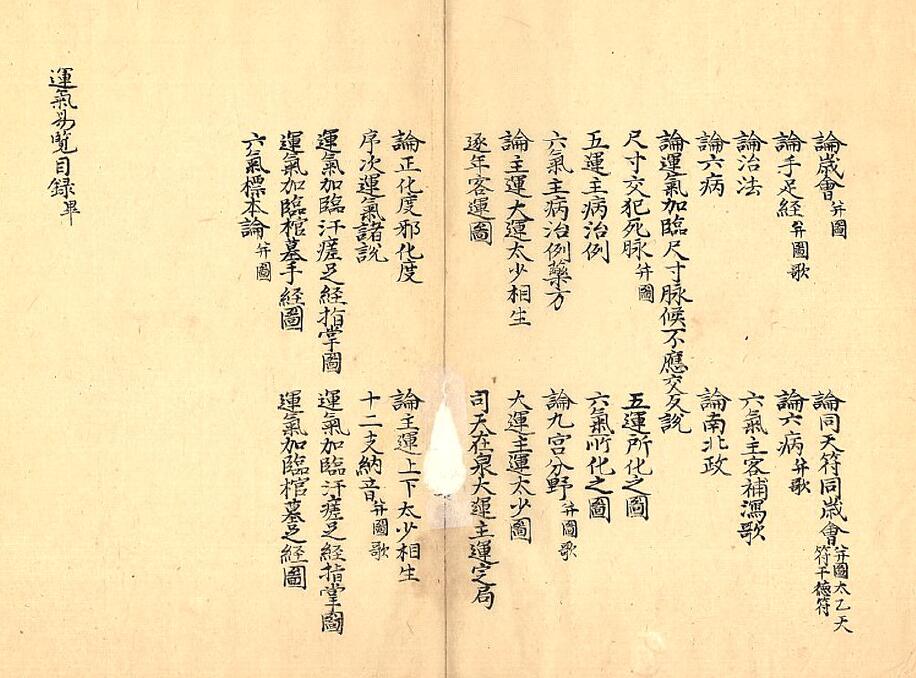 論歲會 并圖
論同天符同歲會 并圖太乙天符干德符
論手足経 并圖歌
論六病 并歌
論治法
六氣主客補瀉歌
論六病
論南北政
論運氣加臨尺寸脉候不應交反說
尺寸交犯死脉 并圖
五運所化之圖
五運主病治例
六氣所化之圖
六氣主病治例藥方
論九宮分野 并圖歌
論主運大運太少相生
大運主運太少圖
逐年客運圖
司天在泉大運主運定局
論正化度邪化度
論主運上下太少相生
序次運氣諸說
十二支納音 并圖歌
運氣加臨汗瘥足経指掌圖
運氣加臨汗瘥足経指掌圖
運氣加臨棺墓手経圖
運氣加臨棺墓足経圖
六氣標本論 并圖
運氣易覽目録畢